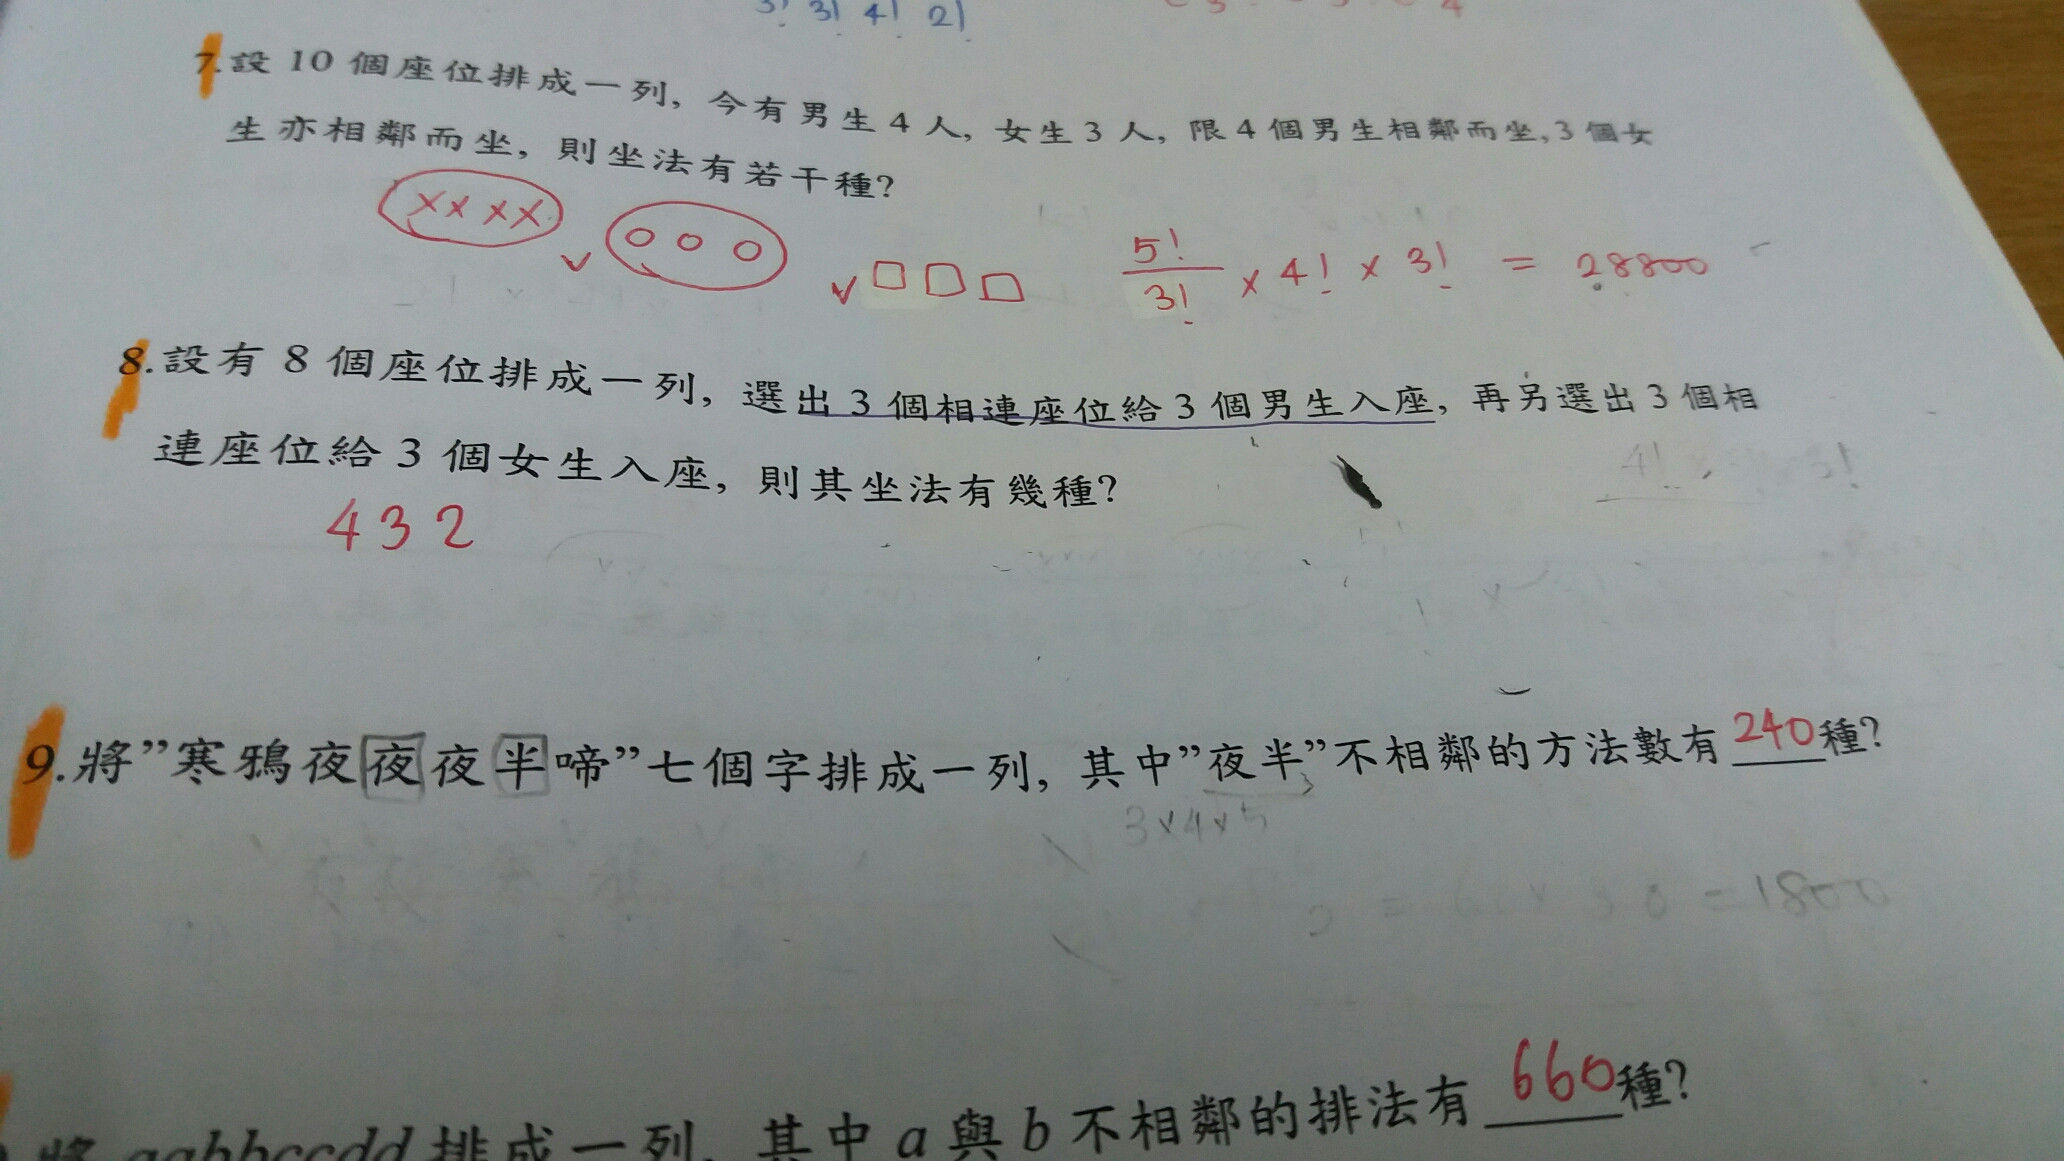 3! 3! 4! 2!
7.設 10 個座位排成一列, 今有男生 4 人, 女生 3 人, 限 4 個男生相鄰而坐, 3 個女
生亦相鄰而坐, 則坐法有若干種?
5!/3! × 4! × 3! = 28800
8.設有 8 個座位排成一列, 選出 3 個相連座位給 3 個男生入座, 再另選出 3 個相
連座位給 3 個女生入座, 則其坐法有幾種?
4! 3!
432
9.將”寒鴉夜夜夜半啼”七個字排成一列, 其中”夜半”不相鄰的方法數有 240 種?
3×4×5
=1800
將 aabbccdd 排成一列, 其中 a 與 b 不相鄰的排法有 660 種?